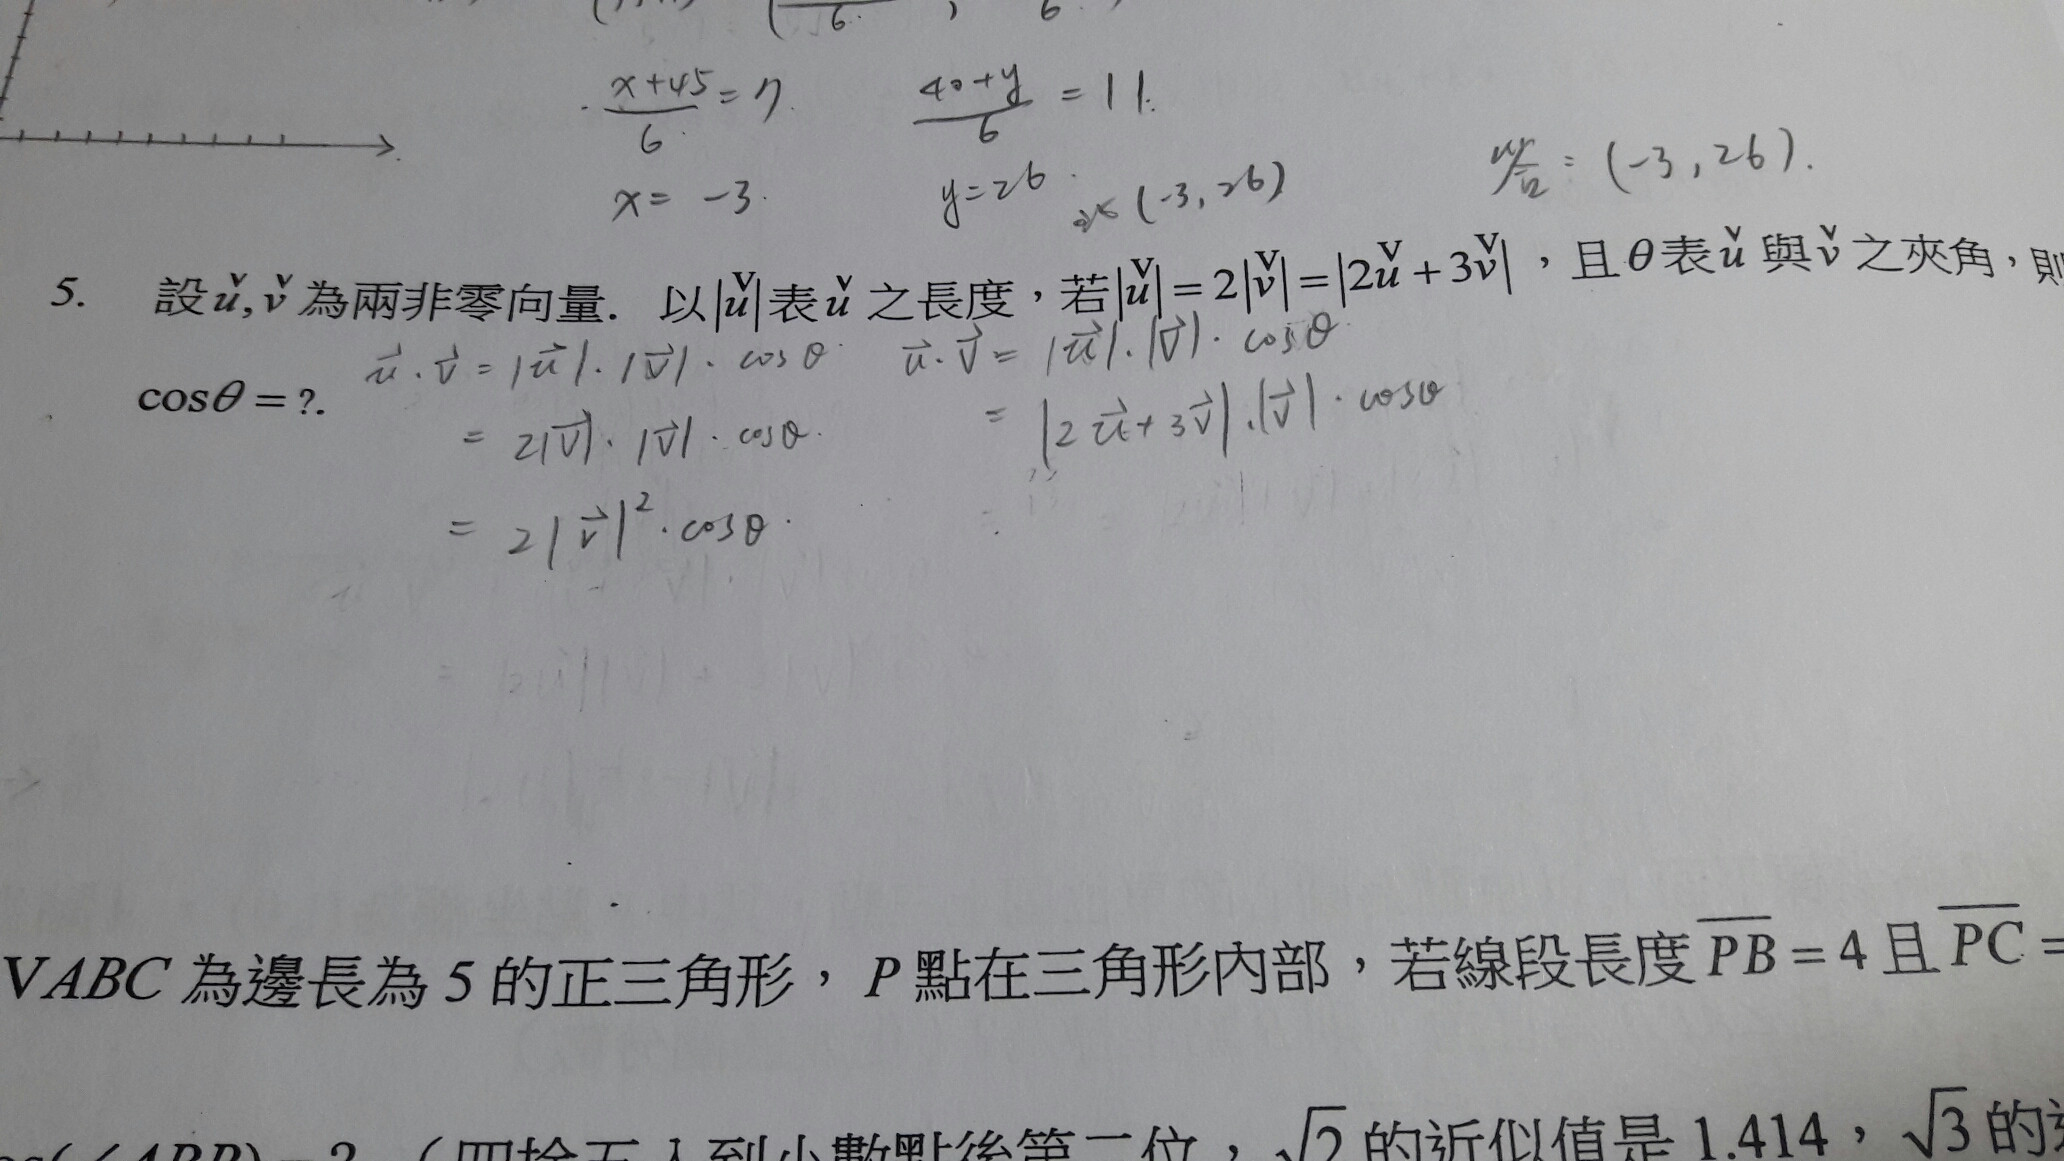 x+45/6 = 7. 40+y/6 = 11.
x = -3. y=26. (-3, 26) 答 : (-3, 26).
5. 設ǔ, v̌ 為兩非零向量. 以|ǔ|表ǔ 之長度，若|ǔ| = 2|v̌| = |2ǔ + 3v̌|，且θ表ǔ 與v̌ 之夾角，則
u⃗ · v⃗ = |u⃗| · |v⃗| · cosθ. u⃗ · v⃗ = |u⃗| · |v⃗| · cosθ.
cosθ = ?.
= 2|v⃗| · |v⃗| · cosθ. = |2u⃗+3v⃗| · |v⃗| · cosθ
= 2|v⃗|² · cosθ.
VABC 為邊長為 5 的正三角形，P 點在三角形內部，若線段長度 P̅B̅ = 4 且 P̅C̅ =
(四捨五入到小數點後第二位，√2 的近似值是 1.414，√3 的